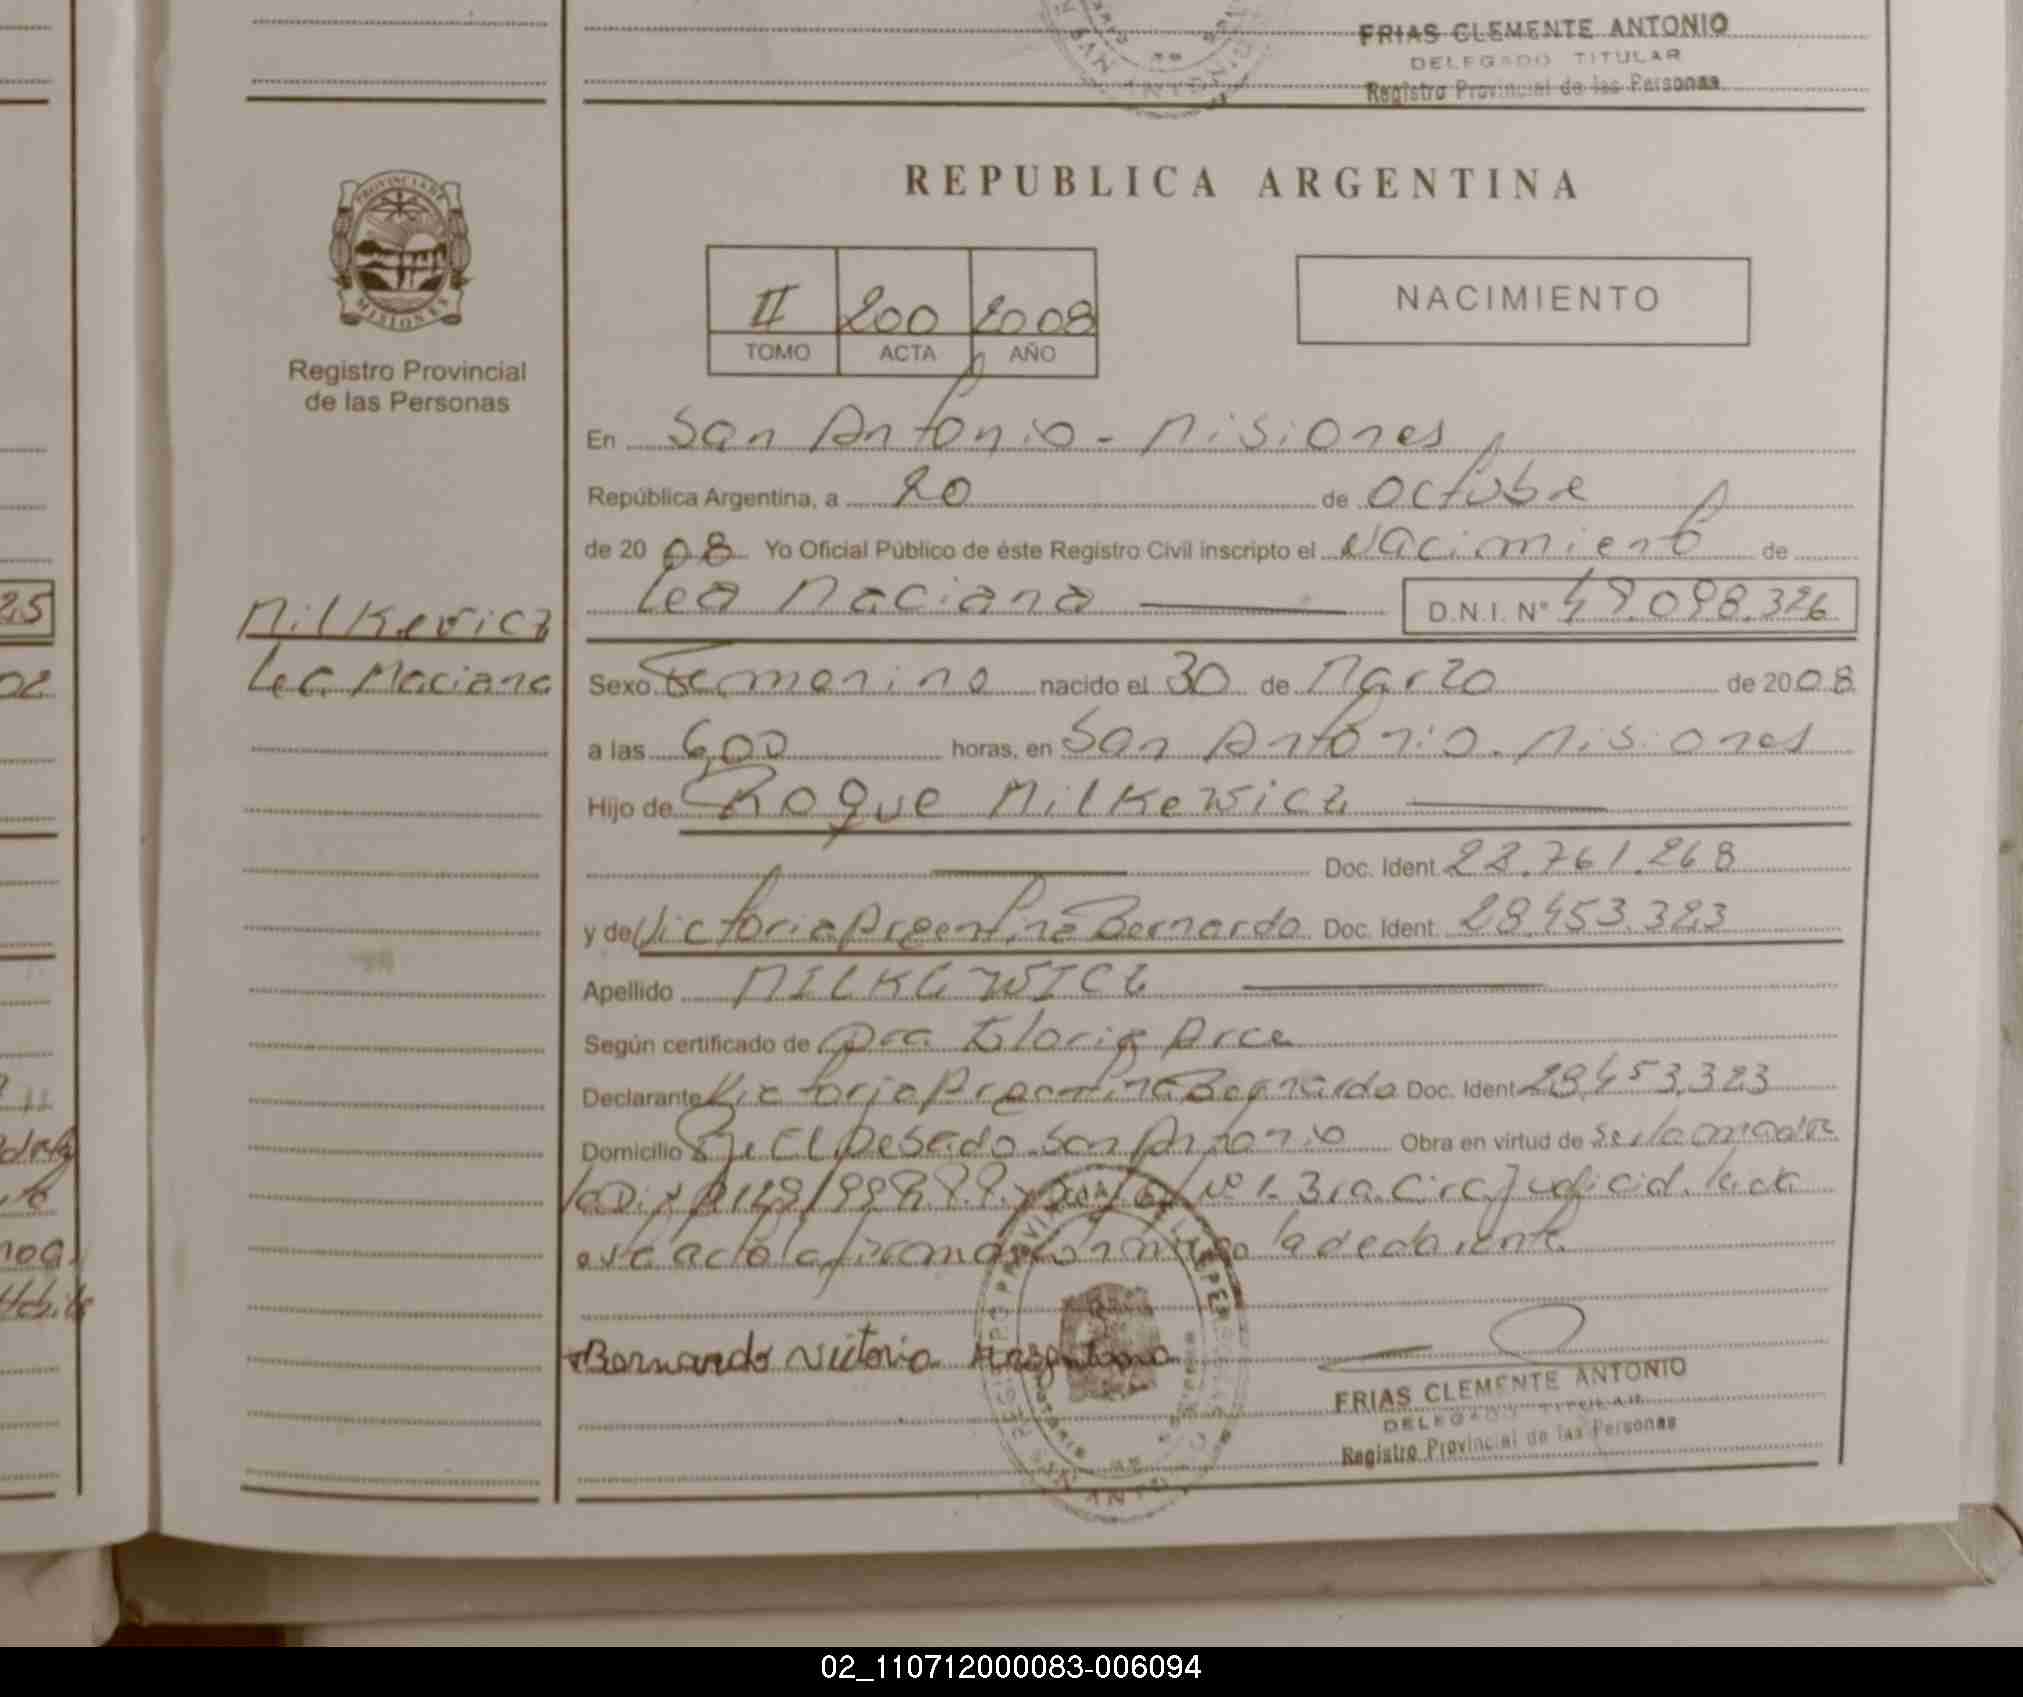 FRIAS CLEMENTE ANTONIO
DELEGADO TITULAR
Registro Provincial de las Personas
PROVINCIA DE
MISIONES
Registro Provincial
de las Personas
REPUBLICA ARGENTINA
II 200 2008
TOMO ACTA AÑO
NACIMIENTO
En San Antonio - Misiones
República Argentina, a 20 de Octubre
de 20 08 Yo Oficial Público de éste Registro Civil inscripto el Nacimiento de
Lea Maciana D.N.I. Nº 49.098.326
25
Milkewicz
Lea Maciana
Sexo Femenino nacido el 30 de Marzo de 20 08
a las 6,00 horas, en San Antonio - Misiones
Hijo de Roque Milkewicz
Doc. Ident. 22.761.268
y de Victoria Argentina Bernardo Doc. Ident. 28.453.323
Apellido MILKEWICZ
Según certificado de Dra. Gloria Arce
Declarante Victoria Argentina Bernardo Doc. Ident. 28.453.323
Domicilio El Pesado San Antonio Obra en virtud de ser la madre
Nº 1 - 3ra. Circ. Judicial. Leida
esta acta la firma conmigo la declarante
Bernardo Victoria Argentina
FRIAS CLEMENTE ANTONIO
DELEGADO TITULAR
Registro Provincial de las Personas
02_110712000083-006094